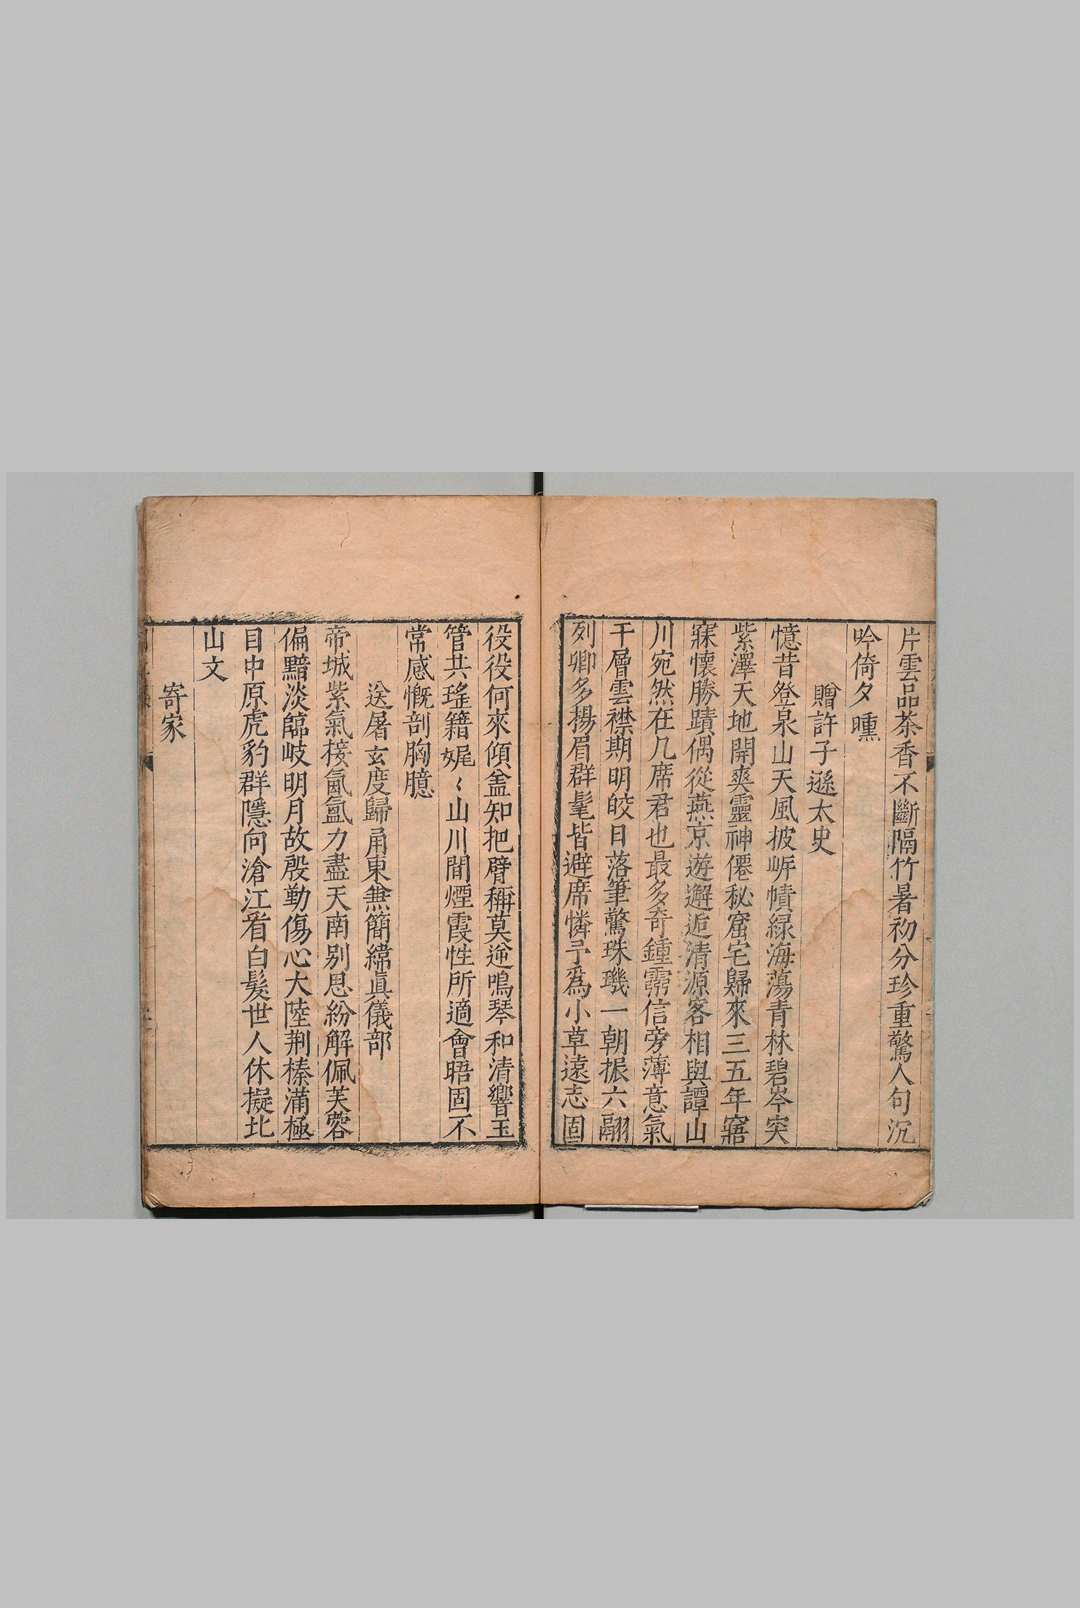 片雲品茶香不斷隔竹暑初分珍重驚人句沉
吟倚夕曛
贈許子遜太史
憶昔登泉山天風披岝幘緑海蕩青林碧岑突
紫澤天地開爽靈神僊秘窟宅歸來三五年寤
寐懷勝蹟偶從燕京遊邂逅清源客相與譚山
川宛然在几席君也最多奇鍾霛信旁薄意氣
干層雲襟期明皎日落筆驚珠璣一朝振六翮
列卿多揚眉群髦皆避席憐予爲小草遠志固
役役何來傾盖知把臂稱莫逆鳴琴和清響玉
管共瑤籍娓〻山川間煙霞性所適會晤固不
常感慨剖胸臆
送屠玄度歸甬東無簡緯眞儀部
帝城紫氣接氤氳力盡天南別思紛解佩芙蓉
偏黯淡臨岐明月故殷勤傷心大陸荆榛滿極
目中原虎豹群隱向滄江看白髮世人休擬北
山文
寄家